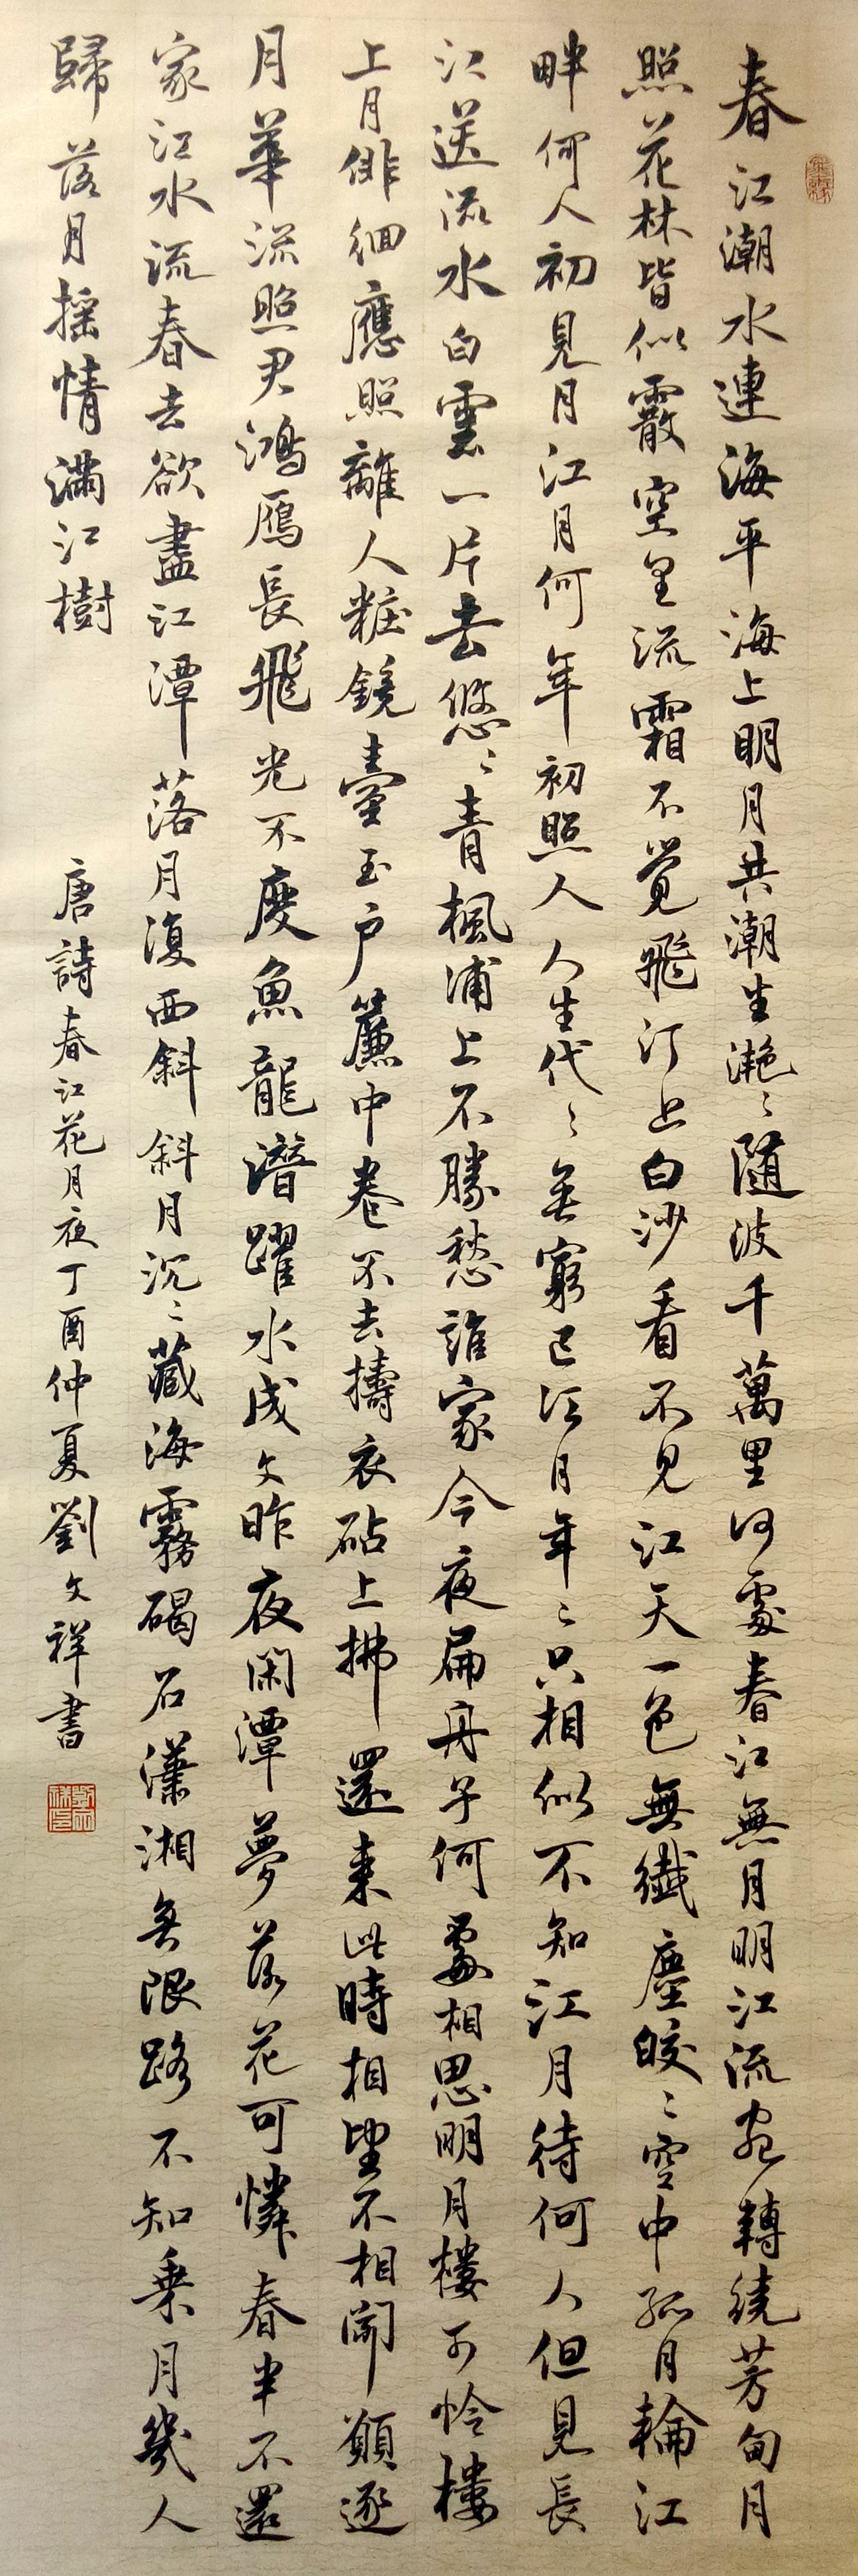 春江潮水連海平海上明月共潮生灔〻随波千萬里何處春江無月明江流宛轉繞芳甸月
照花林皆似霰空里流霜不覺飛汀上白沙看不見江天一色無纖塵皎〻空中孤月輪江
畔何人初見月江月何年初照人人生代〻無窮已江月年〻只相似不知江月待何人但見長
江送流水白雲一片去悠〻青楓浦上不勝愁誰家今夜扁舟子何處相思明月樓可怜樓
上月俳徊應照離人粧鏡臺玉户簾中卷不去擣衣砧上拂還来此時相望不相聞願逐
月華流照君鴻雁長飛光不度魚龍潛躍水成文昨夜閑潭夢落花可憐春半不還
家江水流春去欲盡江潭落月復西斜斜月沉〻藏海霧碣石瀟湘無限路不知乗月幾人
歸落月揺情滿江樹
唐詩春江花月夜丁酉仲夏劉文祥書